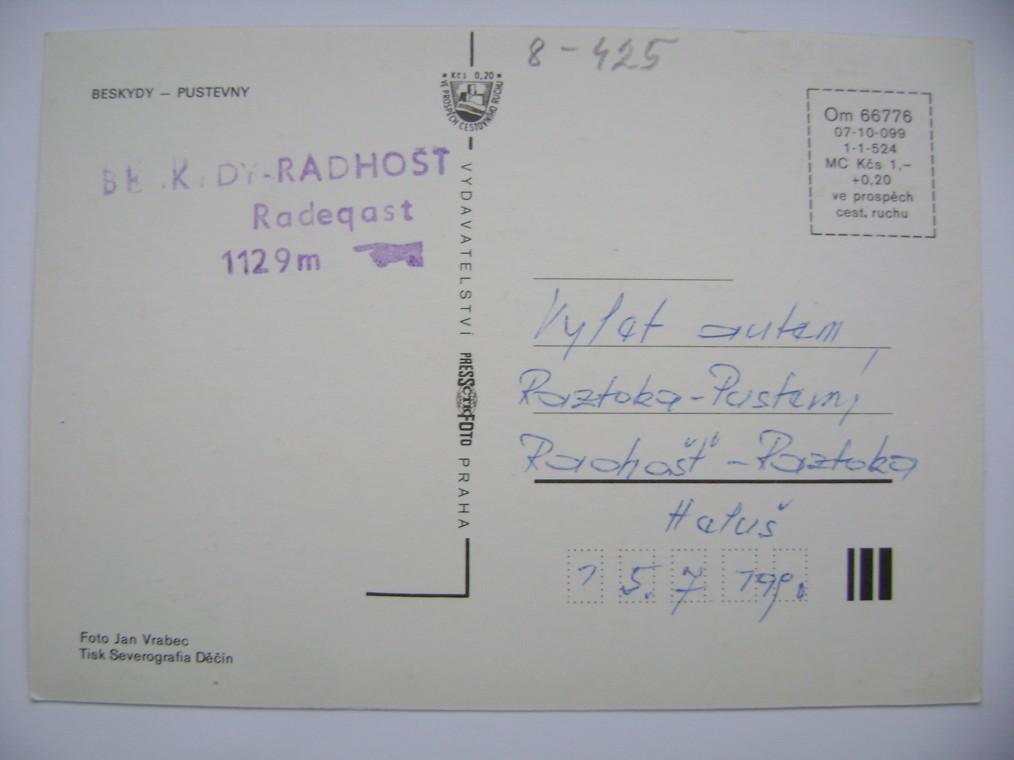 8-425
BESKYDY — PUSTEVNY
* Kčs 0,20 *
VE PROSPĚCH CESTOVNÍHO RUCHU
Om 66776
07-10-099
1-1-524
MC Kčs 1,-
+0,20
ve prospěch
cest. ruchu
BE.K.DY-RADHOŠŤ
Radeqast
1129m
VYDAVATELSTVÍ PRESSFOTO PRAHA
ČTK
Výlet autem,
Raztoka-Pustevny,
Radhošť-Raztoka
Haluš
15.7
Foto Jan Vrabec
Tisk Severografia Děčín